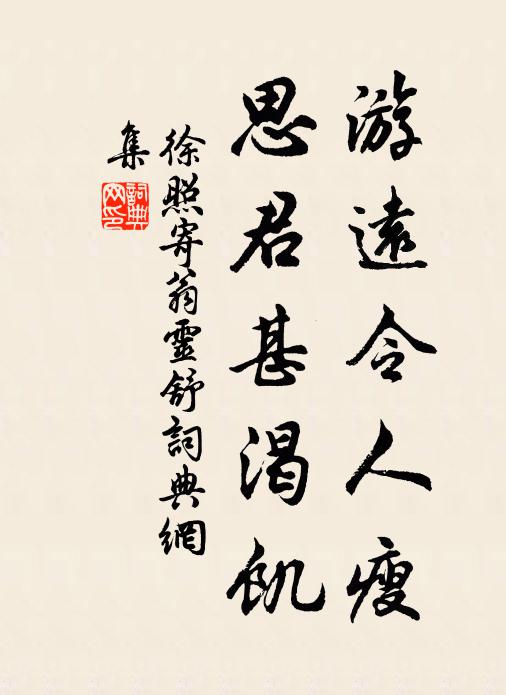 游遠令人瘦
思君甚渴飢
徐照寄翁靈舒詞典網
集
詞典網印